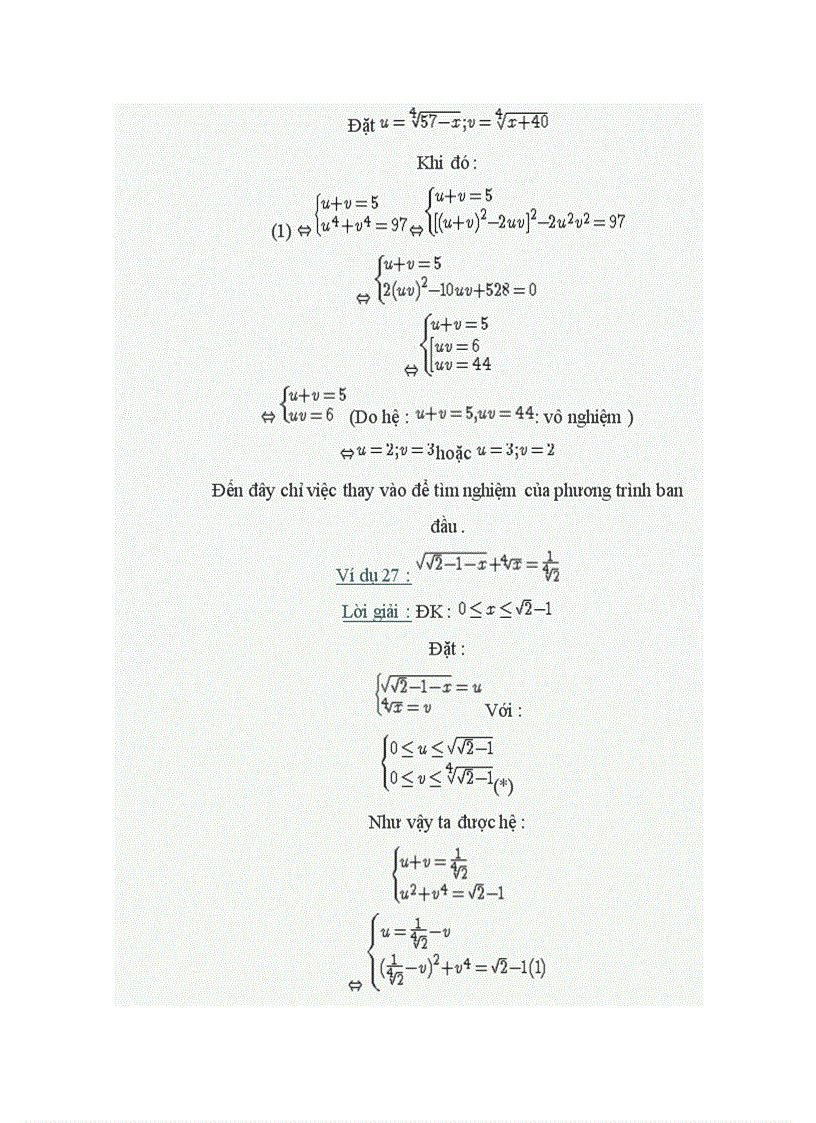 Đặt u = ∜(57−x) ; v = ∜(x+40)
Khi đó :
(1) ⇔ { u+v = 5 ; u⁴+v⁴ = 97 ⇔ { u+v = 5 ; [(u+v)²−2uv]²−2u²v² = 97
⇔ { u+v = 5 ; 2(uv)²−10uv+528 = 0
⇔ { u+v = 5 ; [ uv = 6 ; uv = 44
⇔ { u+v = 5 ; uv = 6 (Do hệ : u+v = 5,uv = 44: vô nghiệm )
⇔ u = 2;v = 3 hoặc u = 3;v = 2
Đến đây chỉ việc thay vào để tìm nghiệm của phương trình ban
đầu .
Ví dụ 27 : √(√2−1−x) + ∜x = 1/∜2
Lời giải : ĐK : 0 ≤ x ≤ √2−1
Đặt :
{ √(√2−1−x) = u ; ∜x = v Với :
{ 0 ≤ u ≤ √(√2−1) ; 0 ≤ v ≤ ∜(√2−1) (*)
Như vậy ta được hệ :
{ u+v = 1/∜2 ; u²+v⁴ = √2−1
⇔ { u = 1/∜2 −v ; (1/∜2 −v)²+v⁴ = √2−1(1)